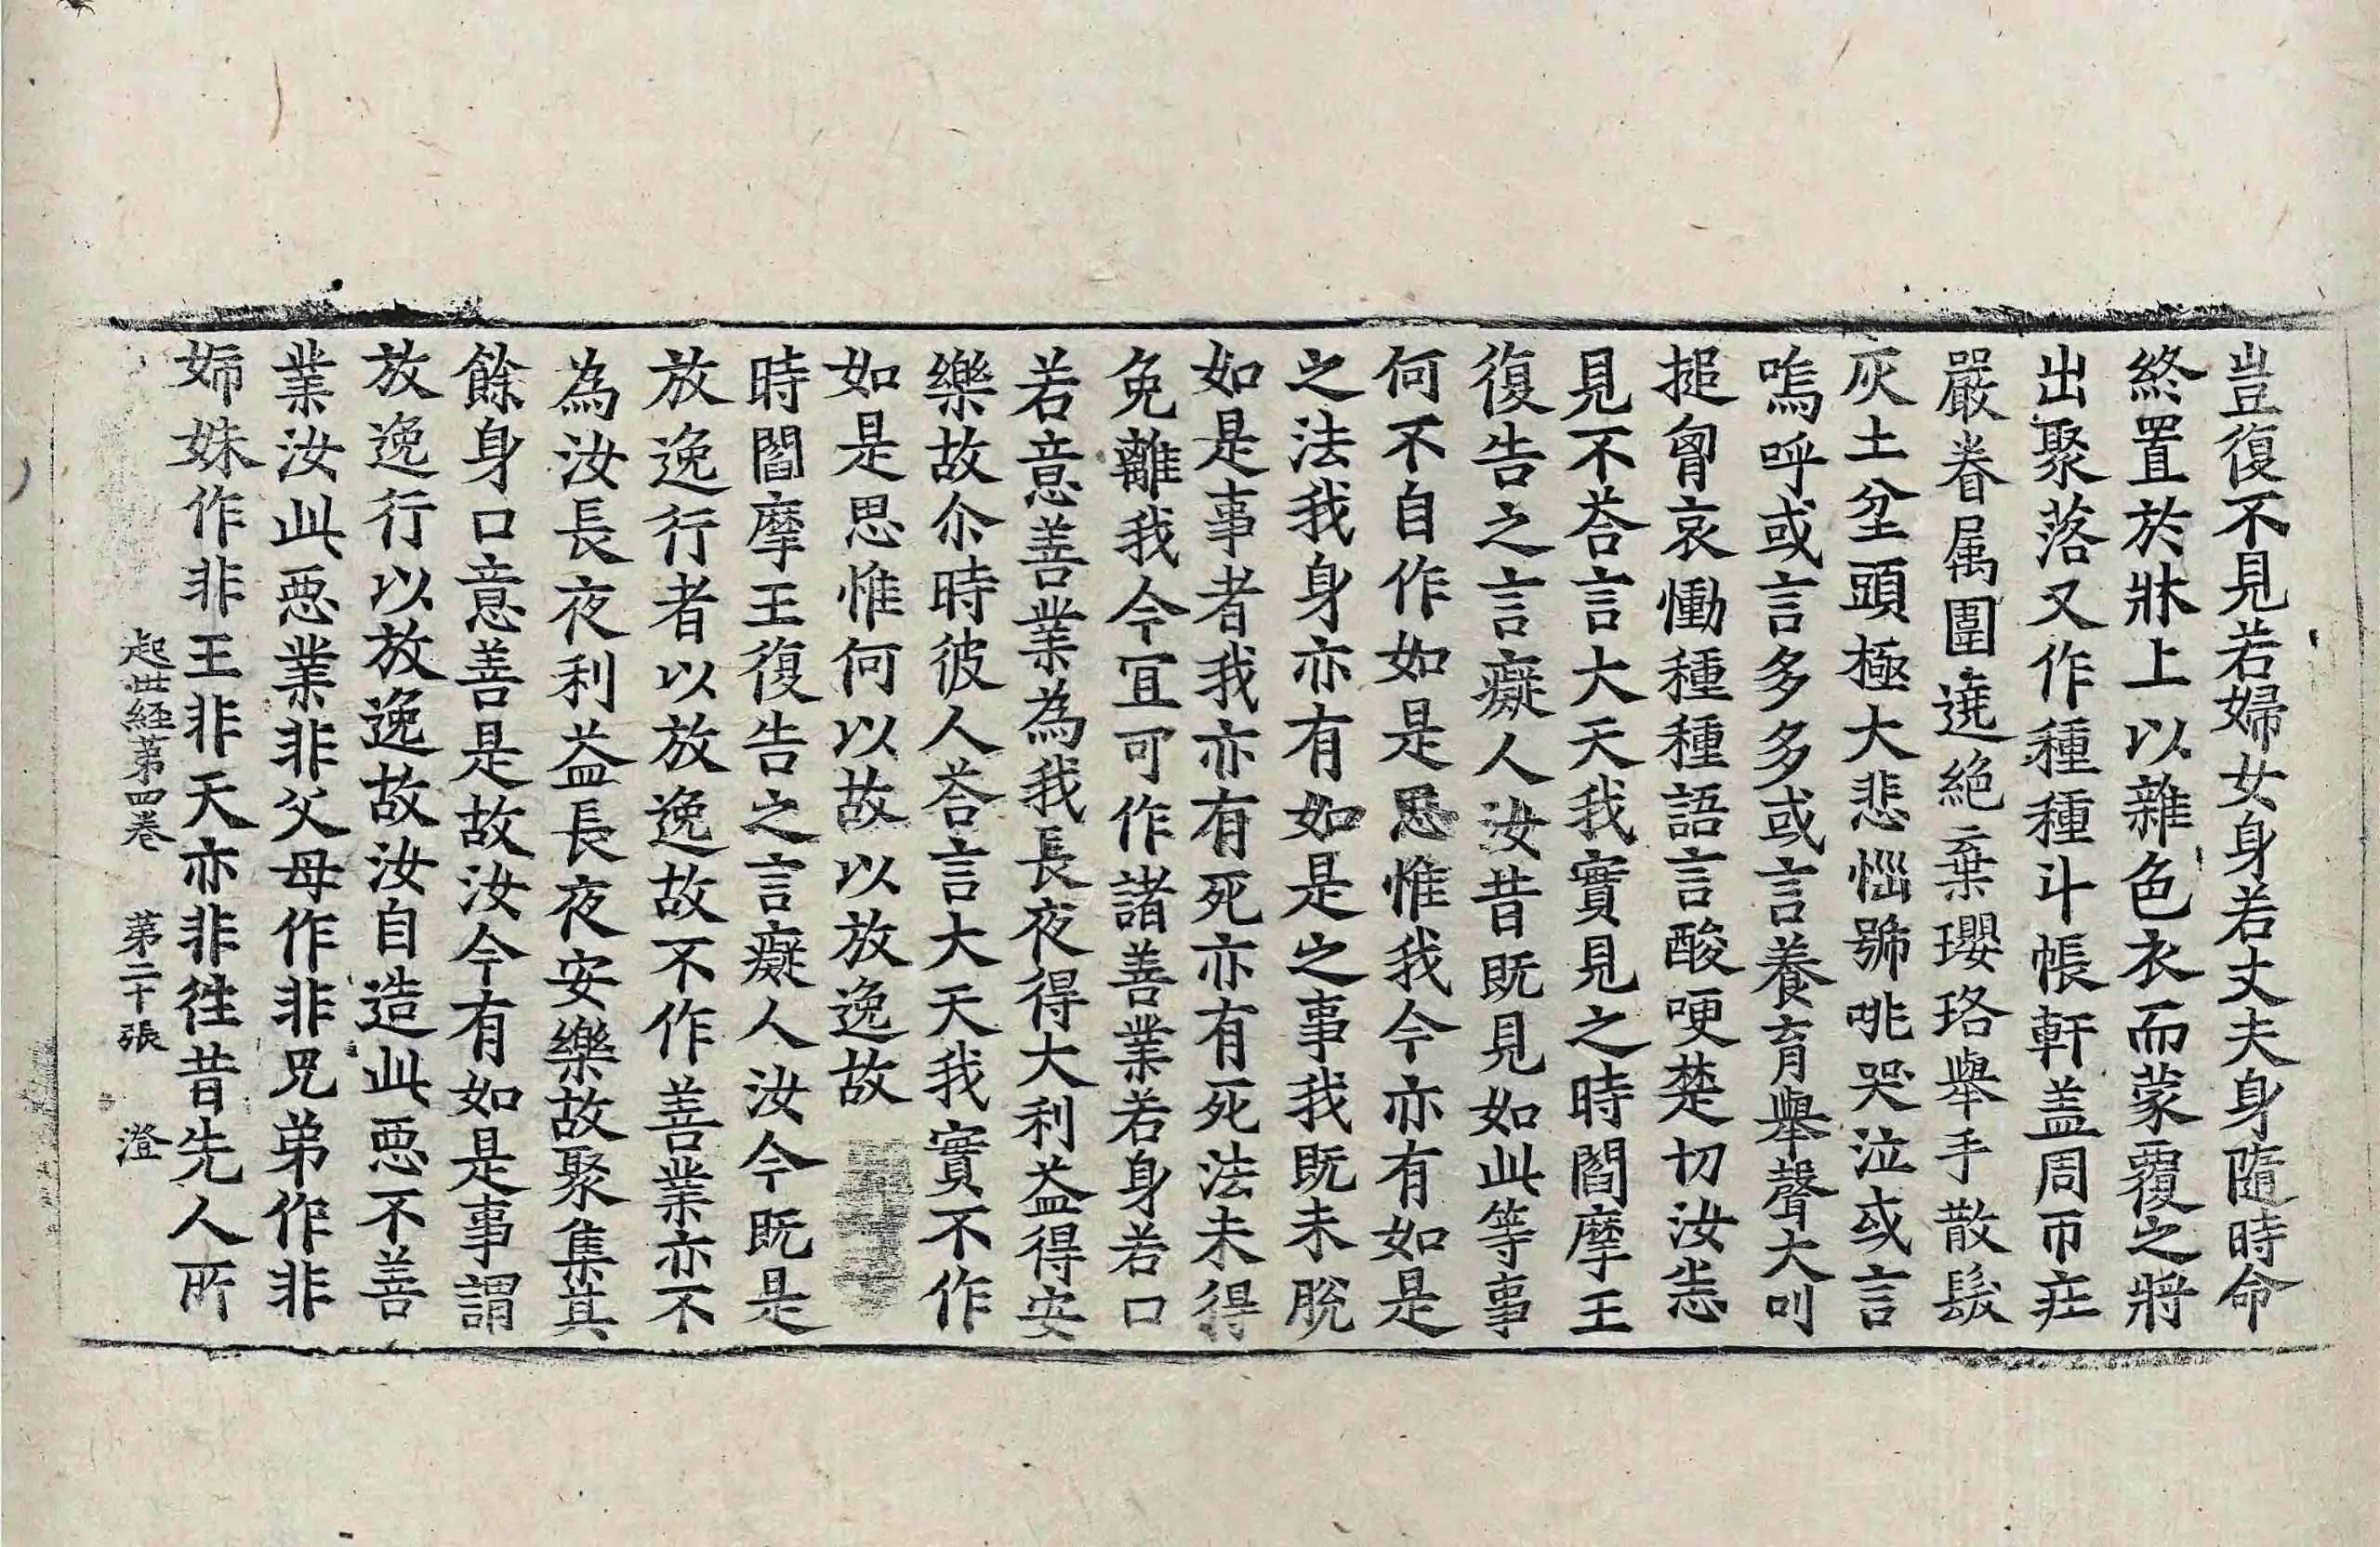 豈復不見若婦女身若丈夫身隨時命
終置於牀上以雜色衣而蒙覆之將
出聚落又作種種斗帳軒盖周帀莊
嚴眷属圍遶絶棄瓔珞舉手散髮
灰土坌頭極大悲惱號咷哭泣或言
嗚呼或言多多或言養育舉聲大叫
搥胷哀慟種種語言酸哽楚切汝悉
見不荅言大天我實見之時閻摩王
復告之言癡人汝昔既見如此等事
何不自作如是思惟我今亦有如是
之法我身亦有如是之事我既未脫
如是事者我亦有死亦有死法未得
免離我今冝可作諸善業若身若口
若意善業為我長夜得大利益得安
樂故尒時彼人荅言大天我實不作
如是思惟何以故以放逸故
時閻摩王復告之言癡人汝今既是
放逸行者以放逸故不作善業亦不
為汝長夜利益長夜安樂故聚集其
餘身口意善是故汝今有如是事謂
放逸行以放逸故汝自造此惡不善
業汝此惡業非父母作非兄弟作非
姉妹作非王非天亦非徃昔先人所
起世經第四卷 第二十張 澄